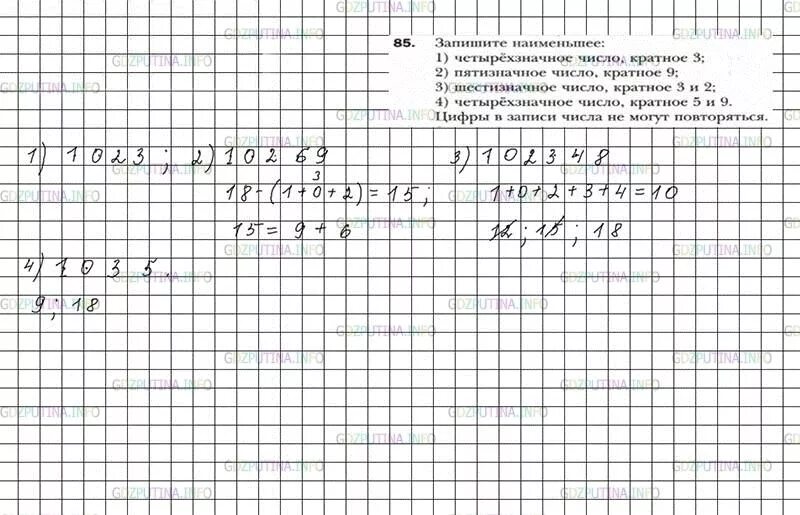 85. Запишите наименьшее:
1) четырёхзначное число, кратное 3;
2) пятизначное число, кратное 9;
3) шестизначное число, кратное 3 и 2;
4) четырёхзначное число, кратное 5 и 9.
Цифры в записи числа не могут повторяться.
1) 1023; 2) 10269 3) 102348
3
18-(1+0+2)=15; 1+0+2+3+4=10
15= 9+6 12; 15; 18
4) 1035.
9; 18
GDZPUTINA.INFO